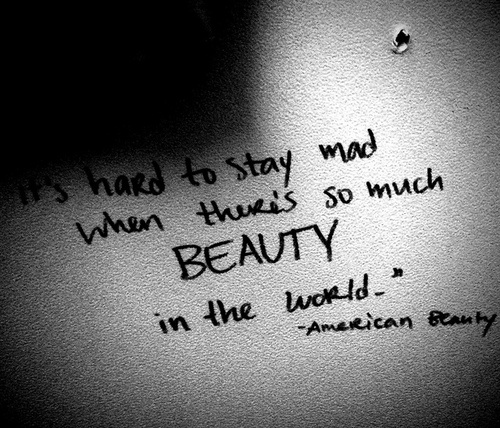 it's hard to stay mad
when there's so much
BEAUTY
in the world."
-American Beauty